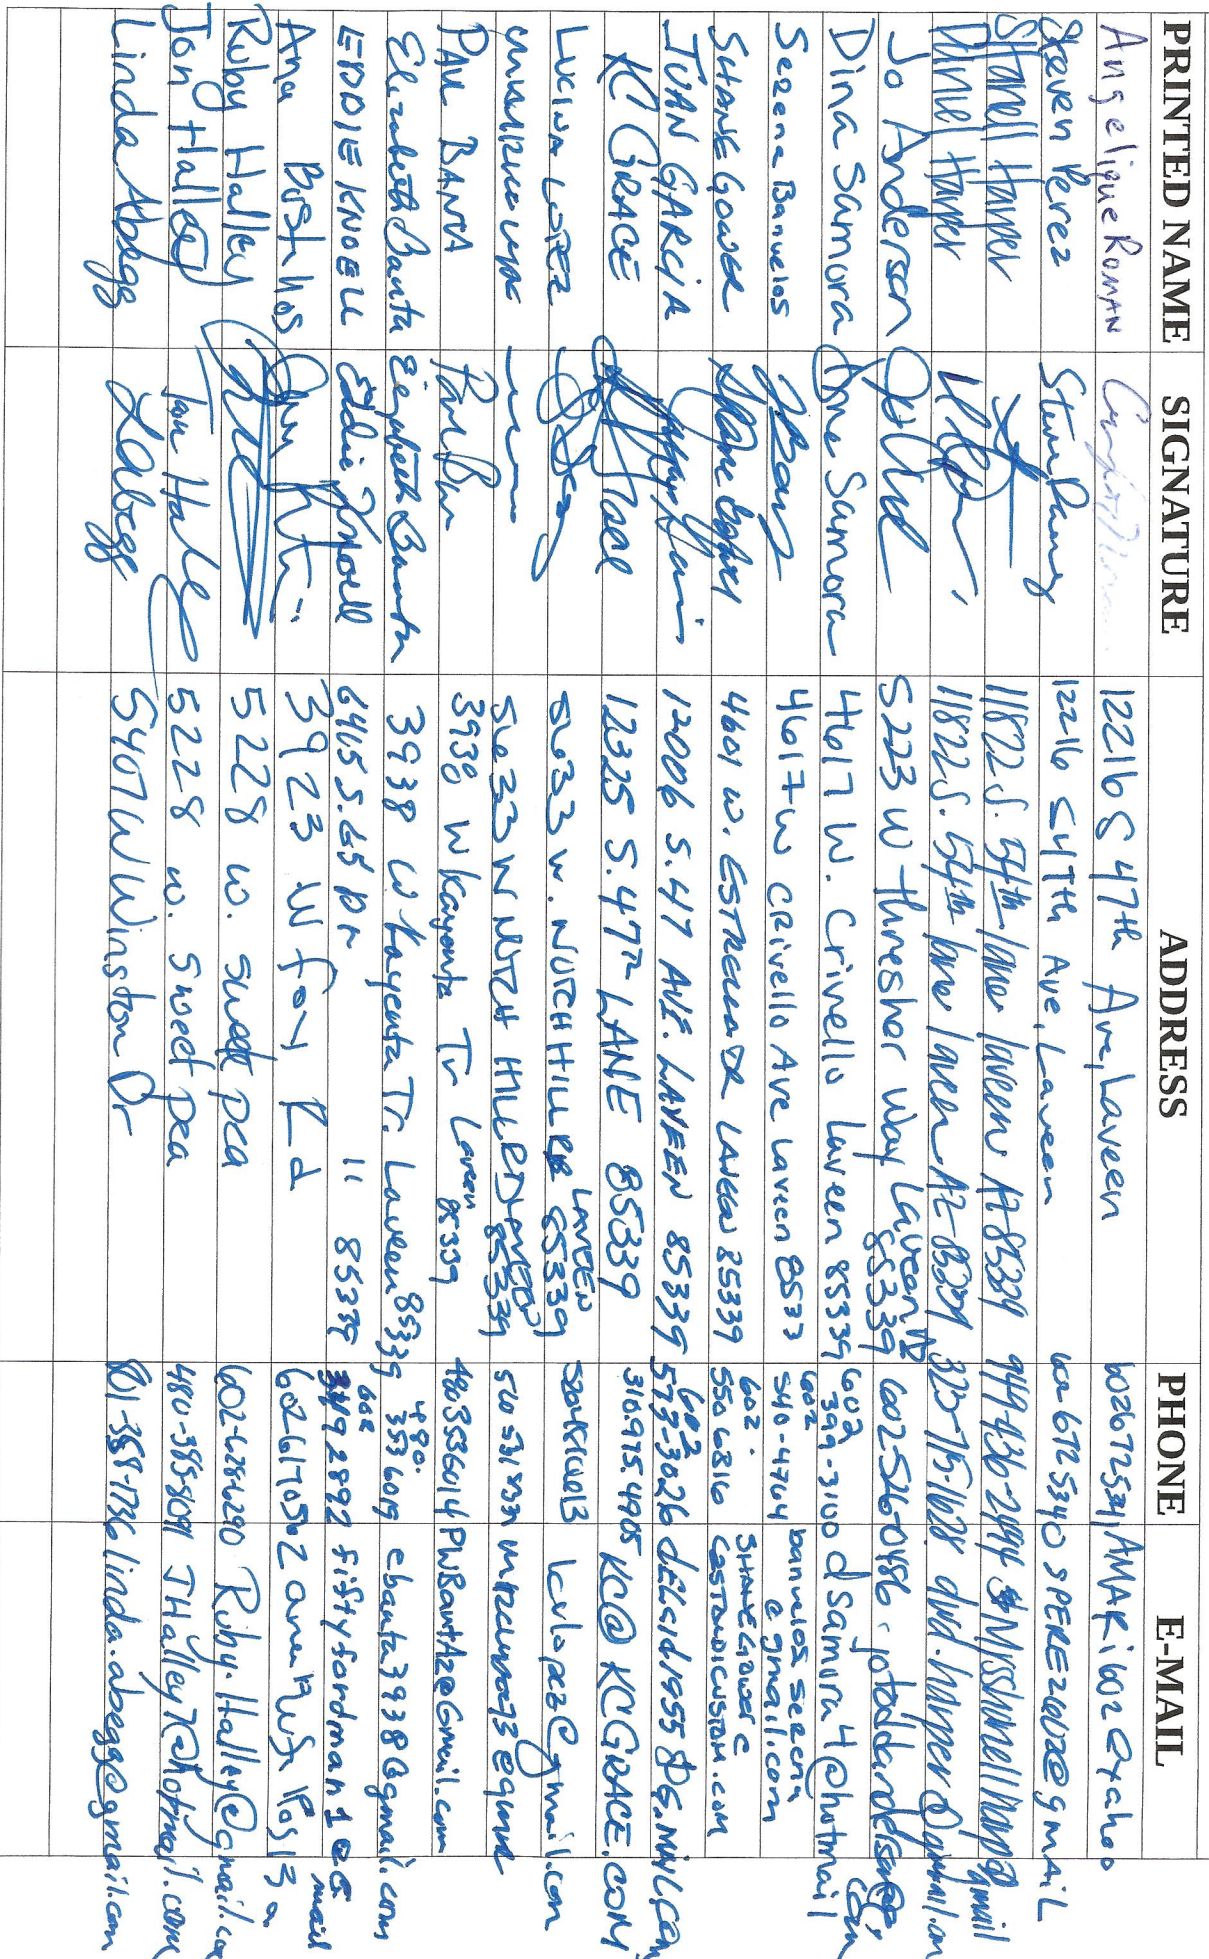 PRINTED NAME SIGNATURE ADDRESS PHONE E-MAIL
Angelique Roman 12216 S 47th Ave, Laveen 6026725341 AMARi602@yahoo
Steven Perez 12216 S 47th Ave, Laveen 602 672 5340 SPEREZ602@gmail
Shanell Harper 11822 S. 54th lane laveen AZ 85339 949-436-2494
Daniel Harper 11822 S. 54th lane laveen AZ-85339 323-715-1628 dvd.harper@gmail.com
Jo Anderson 5223 W Thresher Way Laveen 85339 602-526-0486
Dina Samora Dina Samora 4617 W. Crivello Laveen 85339 602 399-3100 dsamora4@hotmail.com
Serena Banuelos 4617 W Crivello Ave Laveen 8533 602 540-4764 banuelos serena @gmail.com
SHANE GOWER 4601 W. ESTRELLA DR LAVEEN 85339 602. 550 6816 SHANEGOWER@
JUAN GARCIA 12006 S. 47 AVE. LAVEEN 85339 602 573-3026
KC GRACE 12325 S. 47th LANE 85339 310.975.4905 KC@KCGRACE.COM
LUCINA LOPEZ 5633 W. NOTCH HILL LAVEEN 85339 lcvlopez@gmail.com
5633 W NOTCH HILL RD LAVEEN 85339
PAUL BANTA 3938 W Kayenta Tr Laveen 85339 480 353 6014 PWBantaz@Gmail.com
Elizabeth Banta Elizabeth Banta 3938 W Kayenta Tr. Laveen 85339 480. 353 6019 ebanta3938@gmail.com
EDDIE KNOELL Eddie Knoell 6415 S. 65 Dr 11 85339 602 2892 fiftyfordman1@Gmail
Ana 3923 W fox Rd 602 617 0562
Ruby Halley 5228 W. Sweet pea 602-628-6290 Ruby.Halley@gmail.com
Jon Halley Jon Halley 5228 W. Sweet pea 480-385-8091 JHalley7@hotmail.com
Linda Abegg LAbegg 5407 W Winston Dr 801-358-1736 linda.abegg@gmail.com